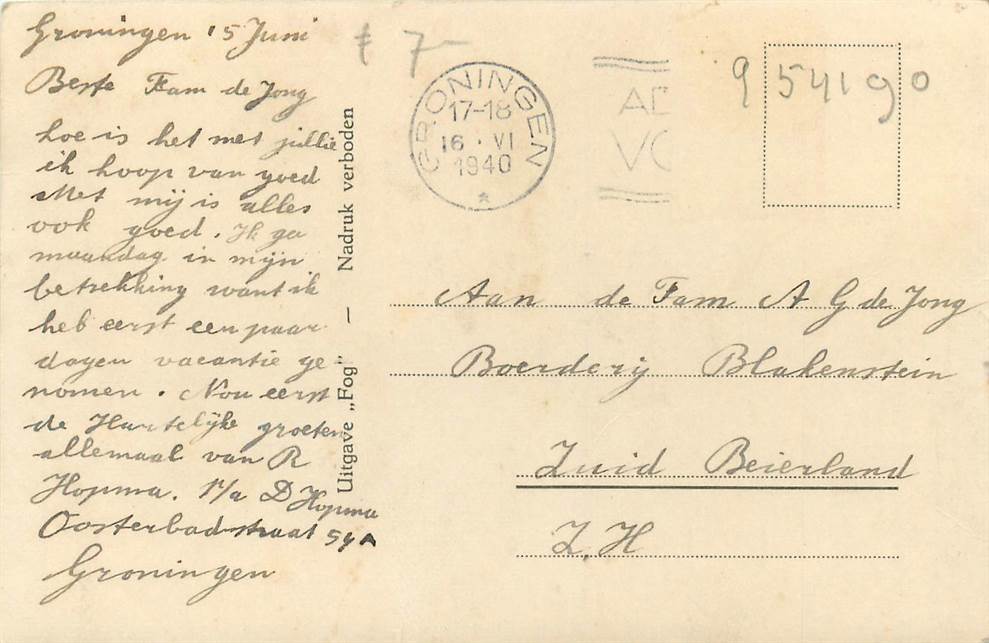 Groningen 15 Juni
Beste Fam de Jong
hoe is het met jullie
ik hoop van goed
Met mij is alles
ook goed. Ik ga
maandag in mijn
betrekking want ik
heb eerst een paar
dagen vacantie ge-
nomen. Nou eerst
de Hartelijke groeten
allemaal van R
Hopma. P/a D Hopma
Oosterbadstraat 54A
Groningen
Uitgave „Fog” — Nadruk verboden
£ 7-
GRONINGEN
17-18
16 · VI
1940
*
954190
Aan de Fam A G de Jong
Boerderij Blakenstein
Zuid Beierland
Z.H